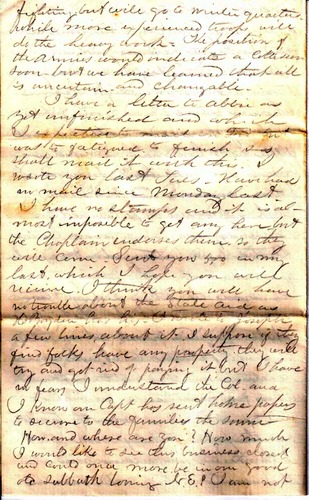 fighting, but will go to winter quarters
while more experienced troops will
do the heavy work. The position of
the armies would indicate a collision
soon but we have learned that all
is uncertain and changable.
I have a letter to Abbie as
yet unfinished and which
I expected to
was to fatigued to finish so
shall mail it with this. I
wrote you last Tues. Have had
no mail since Monday last
I have no stamps and it is al-
most imposible to get any here, but
the Chaplain endorses them so they
will come. Sent you in my
last, which I hope you will
receive. I think you will have
no trouble about the State aid as
a few lines about it. I suppose if they
find folks have any property they will
try and get rid of paying it but I have
no fears. I understand the Col. and
I know our Capt has sent home papers
to secure to the families the same
How and where are you? How much
I would like to see this business closed
and could once more be in our good
old sabbath loving N.E.! I am not